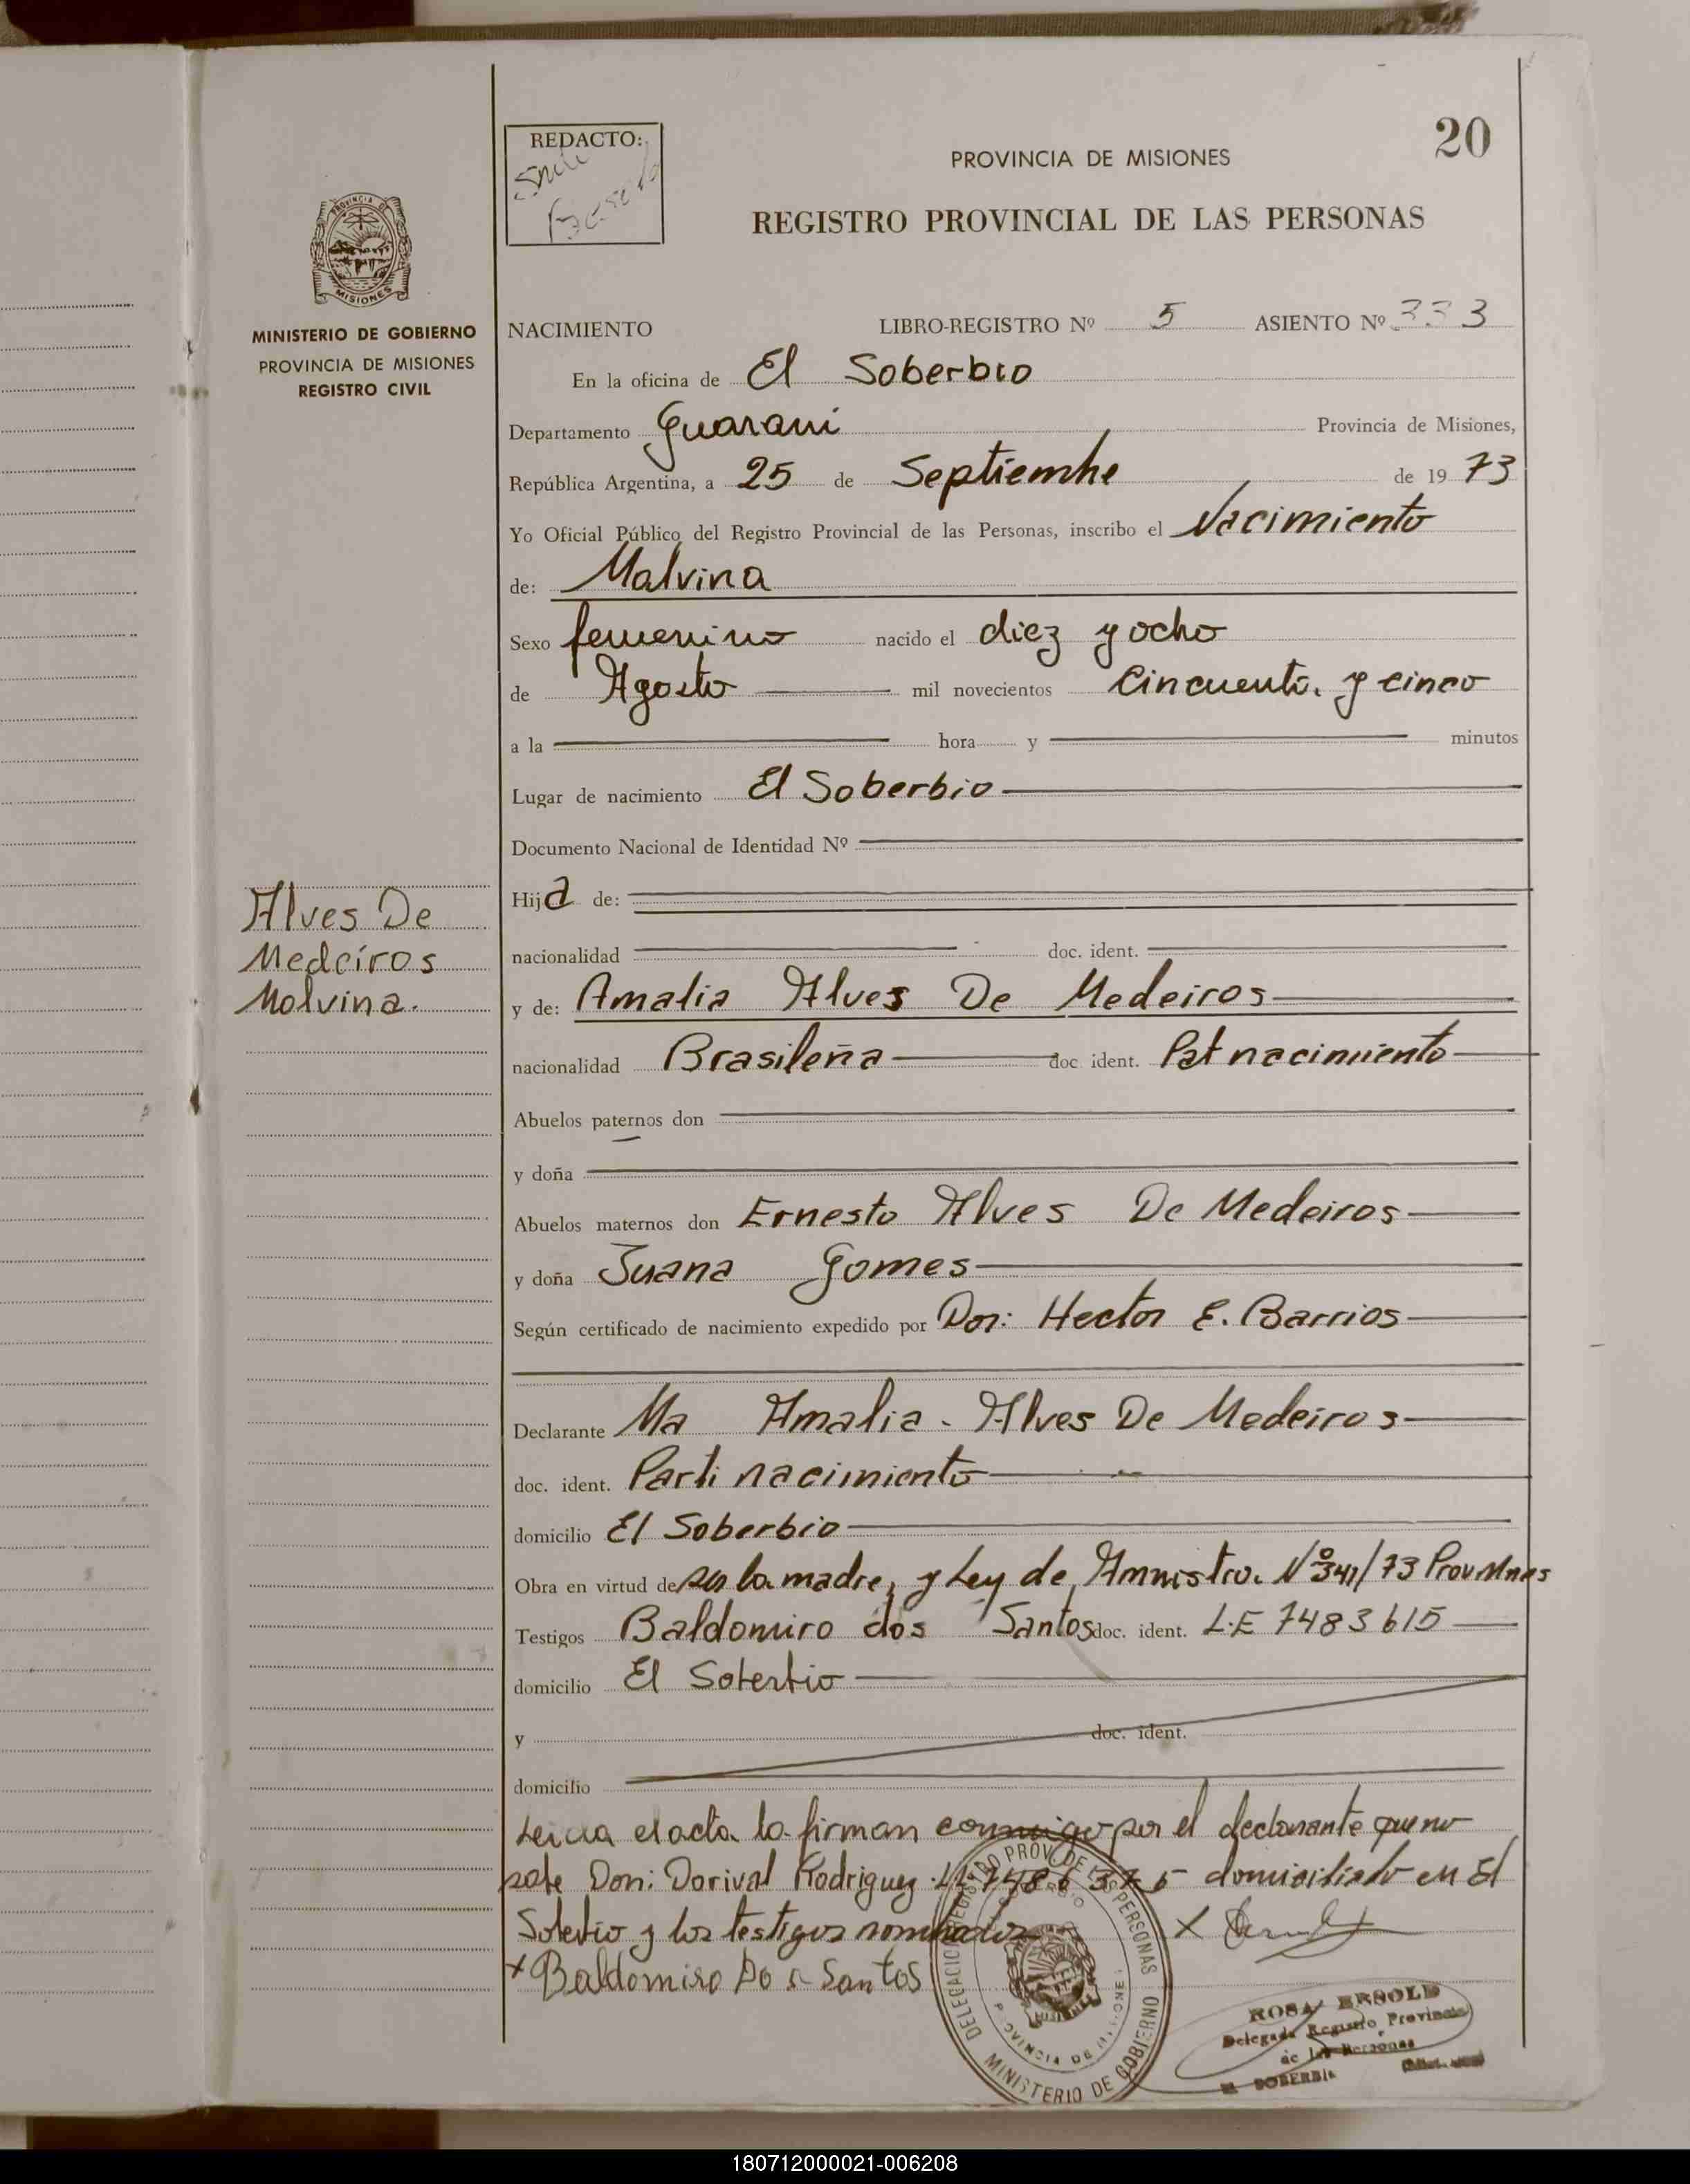 20
REDACTO:
PROVINCIA DE MISIONES
REGISTRO PROVINCIAL DE LAS PERSONAS
PROVINCIA DE
MISIONES
MINISTERIO DE GOBIERNO
PROVINCIA DE MISIONES
REGISTRO CIVIL
NACIMIENTO LIBRO-REGISTRO Nº 5 ASIENTO Nº 333
En la oficina de El Soberbio
Departamento Guarani Provincia de Misiones,
República Argentina, a 25 de Septiembre de 19 73
Yo Oficial Público del Registro Provincial de las Personas, inscribo el Nacimiento
de: Malvina
Sexo femenino nacido el diez y ocho
de Agosto mil novecientos Cincuenta y cinco
a la hora y minutos
Lugar de nacimiento El Soberbio
Documento Nacional de Identidad Nº
Hija de:
nacionalidad doc. ident.
Alves De
Medeiros
Malvina.
y de: Amalia Alves De Medeiros
nacionalidad Brasileña doc ident. Pat nacimiento
Abuelos paternos don
y doña
Abuelos maternos don Ernesto Alves De Medeiros
y doña Juana Gomes
Según certificado de nacimiento expedido por Don: Hector E. Barrios
Declarante Ma Amalia Alves De Medeiros
doc. ident. Parti nacimiento
domicilio El Soberbio
Obra en virtud de ser la madre, y Ley de Amnistia Nº 341/73 Prov Mnes
Testigos Baldomiro dos Santos doc. ident. L.E 7483615
domicilio El Soberbio
y doc. ident.
domicilio
Leida el acta la firman conmigo por el declarante que no
sabe Don: Dorival Rodriguez domiciliado en El
Soberbio y los testigos nombrados X
+ Baldomiro Dos Santos
DELEGACION REGISTRO PROV. DE LAS PERSONAS
PROVINCIA DE MISIONES
MINISTERIO DE GOBIERNO
ROSA ERSOLD
Delegada Registro Provincial
de las Personas
EL SOBERBIO
180712000021-006208